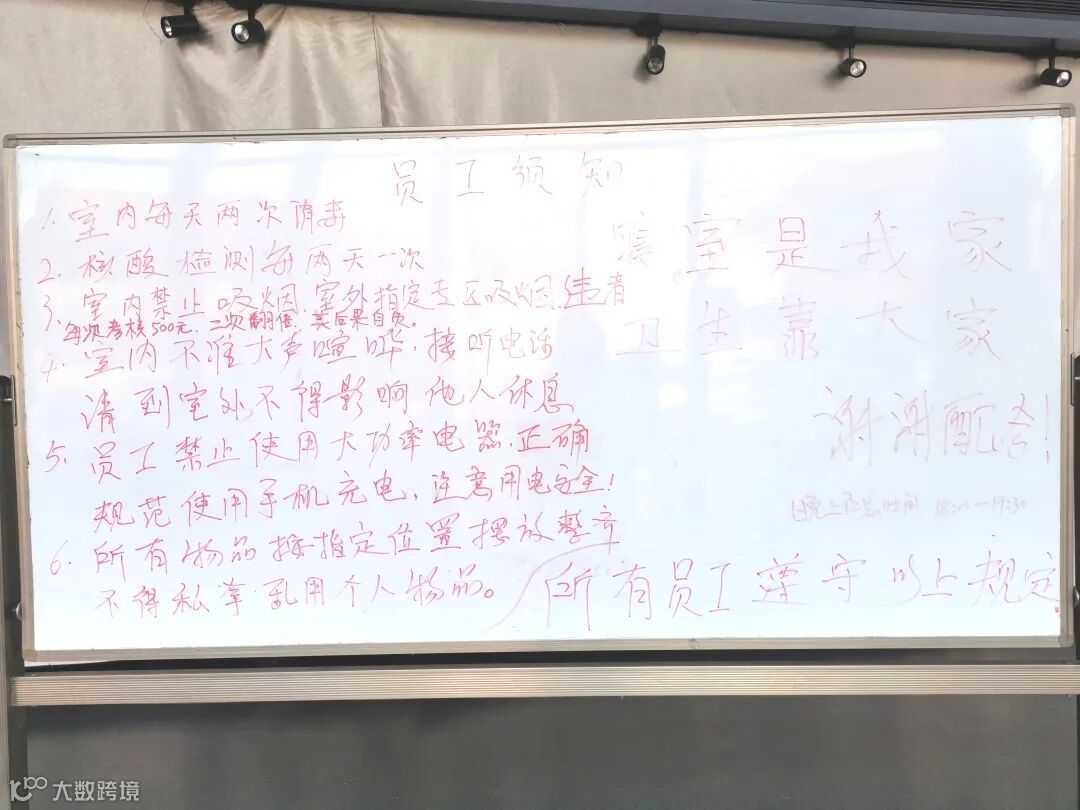 员工须知
1. 室内每天两次消毒
2. 核酸检测每两天一次
3. 室内禁止吸烟,室外指定专区吸烟,违者
每次考核500元,二次翻倍,其后果自负。
4. 室内不准大声喧哗,接听电话
请到室外不得影响他人休息
5. 员工禁止使用大功率电器,正确
规范使用手机充电,注意用电安全!
6. 所有物品按指定位置摆放整齐
不得私拿乱用个人物品。
寝室是我家
卫生靠大家
谢谢配合!
时间 18:30—19:30
所有员工遵守以上规定.
大数跨境